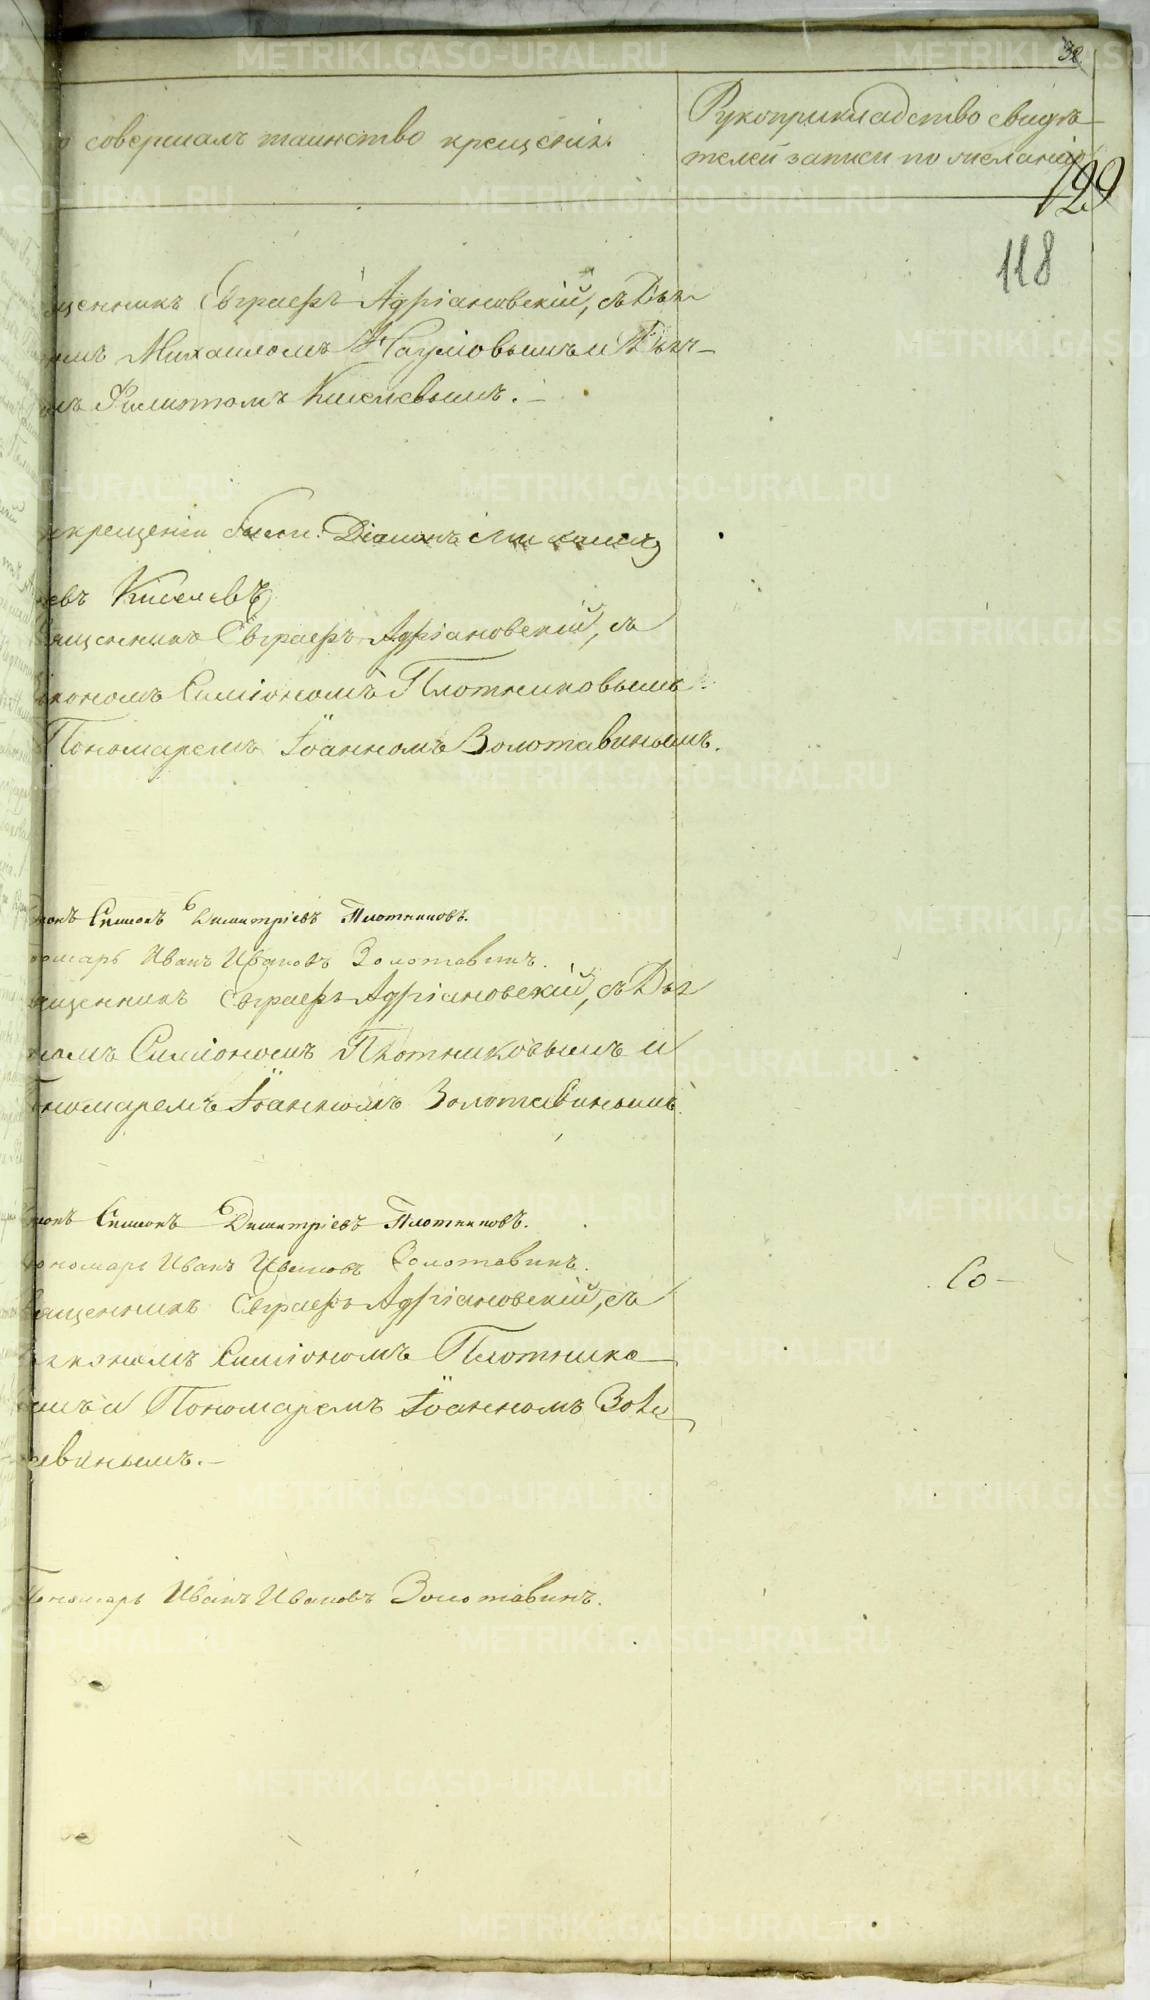 32
совершалъ таинство крещенія.
Рукоприкладство свидѣ-
телей записи по желанію
129
118
щенникъ Евграфъ Адріановскій, съ Дья
Михаиломъ Наумовымъ и Дьяч-
Филиппомъ Киселевымъ. -
крещеніи были: Діаконъ Михаилъ
евъ Киселевъ
ященникъ Евграфъ Адріановскій, съ
кономъ Симіономъ Плотниковымъ
Пономаремъ Іоанномъ Золотавинымъ.
конъ Симіонъ Димитріевъ Плотниковъ.
номарь Иванъ Ивановъ Золотавинъ.
ященникъ Евграфъ Адріановскій, съ Дья
номъ Симіономъ Плотниковымъ и
ономаремъ Іоанномъ Золотавинымъ
конъ Симіонъ Димитріевъ Плотниковъ.
ономарь Иванъ Ивановъ Золотавинъ.
ященникъ Евграфъ Адріановскій, съ
Со-
якономъ Симіономъ Плотнико
ымъ и Пономаремъ Іоанномъ Золо
авинымъ. -
Пономарь Иванъ Ивановъ Золотавинъ.
METRIKI.GASO-URAL.RU